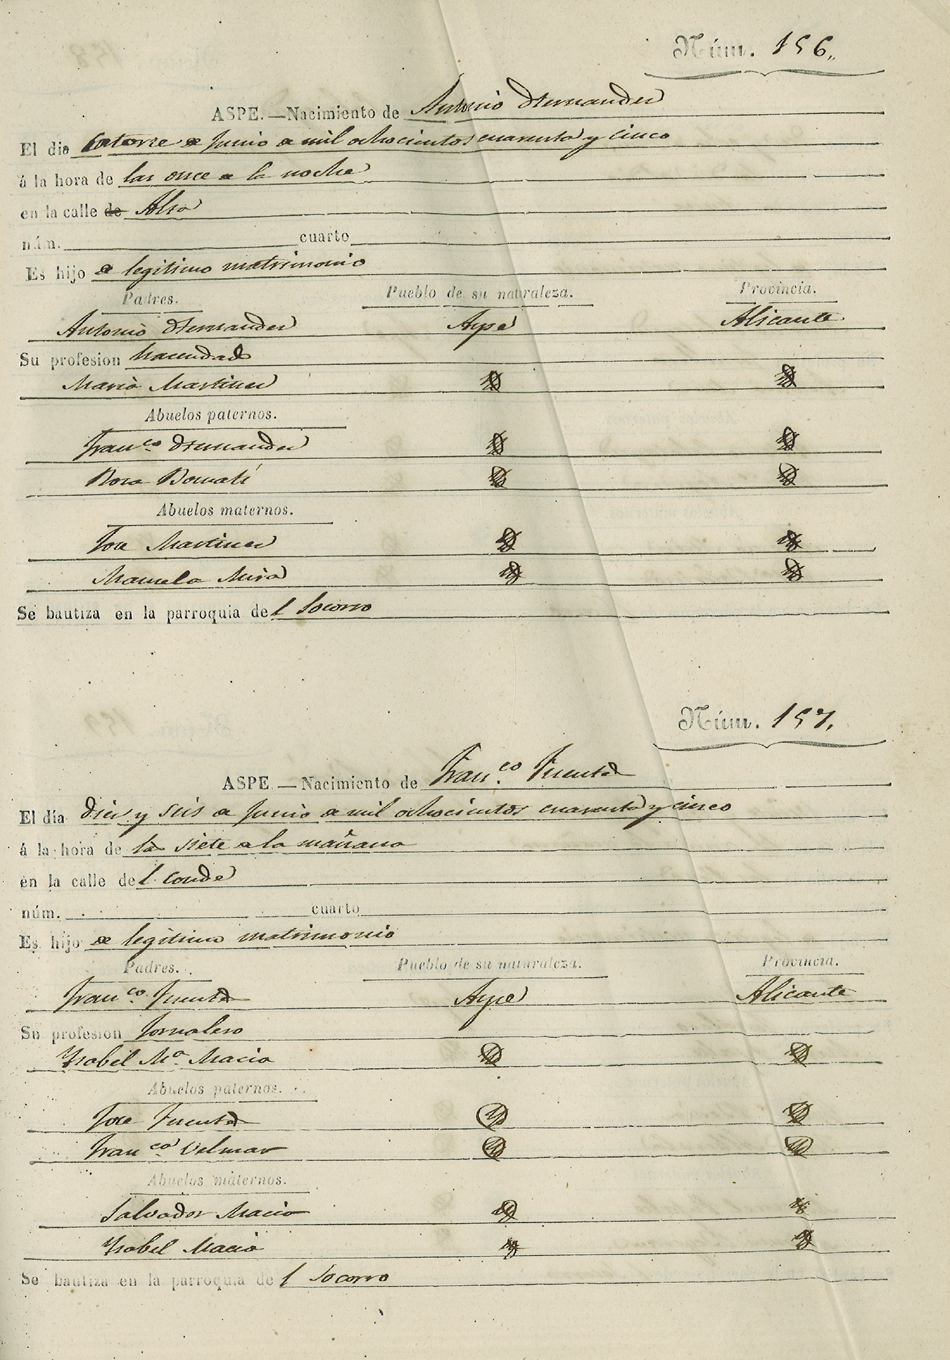 Núm. 156.
ASPE.—Nacimiento de Antonio Hernandez
El dia catorce de Junio de mil ochocientos cuarenta y cinco
á la hora de las once de la noche
en la calle de Alta
núm. cuarto
Es hijo de legitimo matrimonio
Padres. Pueblo de su naturaleza. Provincia.
Antonio Hernandez Aspe Alicante
Su profesion hacendado
Maria Martinez
Abuelos paternos.
Fran.co Hernandez
Rosa Bomatí
Abuelos maternos.
Jose Martinez
Manuela Mira
Se bautiza en la parroquia del Socorro
Núm. 157.
ASPE.—Nacimiento de Fran.co Fuentes
El día diez y seis de Junio de mil ochocientos cuarenta y cinco
á la hora de las siete de la mañana
en la calle del Conde
núm. cuarto
Es hijo de legitimo matrimonio
Padres. Pueblo de su naturaleza. Provincia.
Fran.co Fuentes Aspe Alicante
Su profesion Jornalero
Ysabel M.a Macia
Abuelos paternos.
Jose Fuentes
Fran.ca
Abuelos maternos.
Salvador Macia
Ysabel Macia
Se bautiza en la parroquia del Socorro